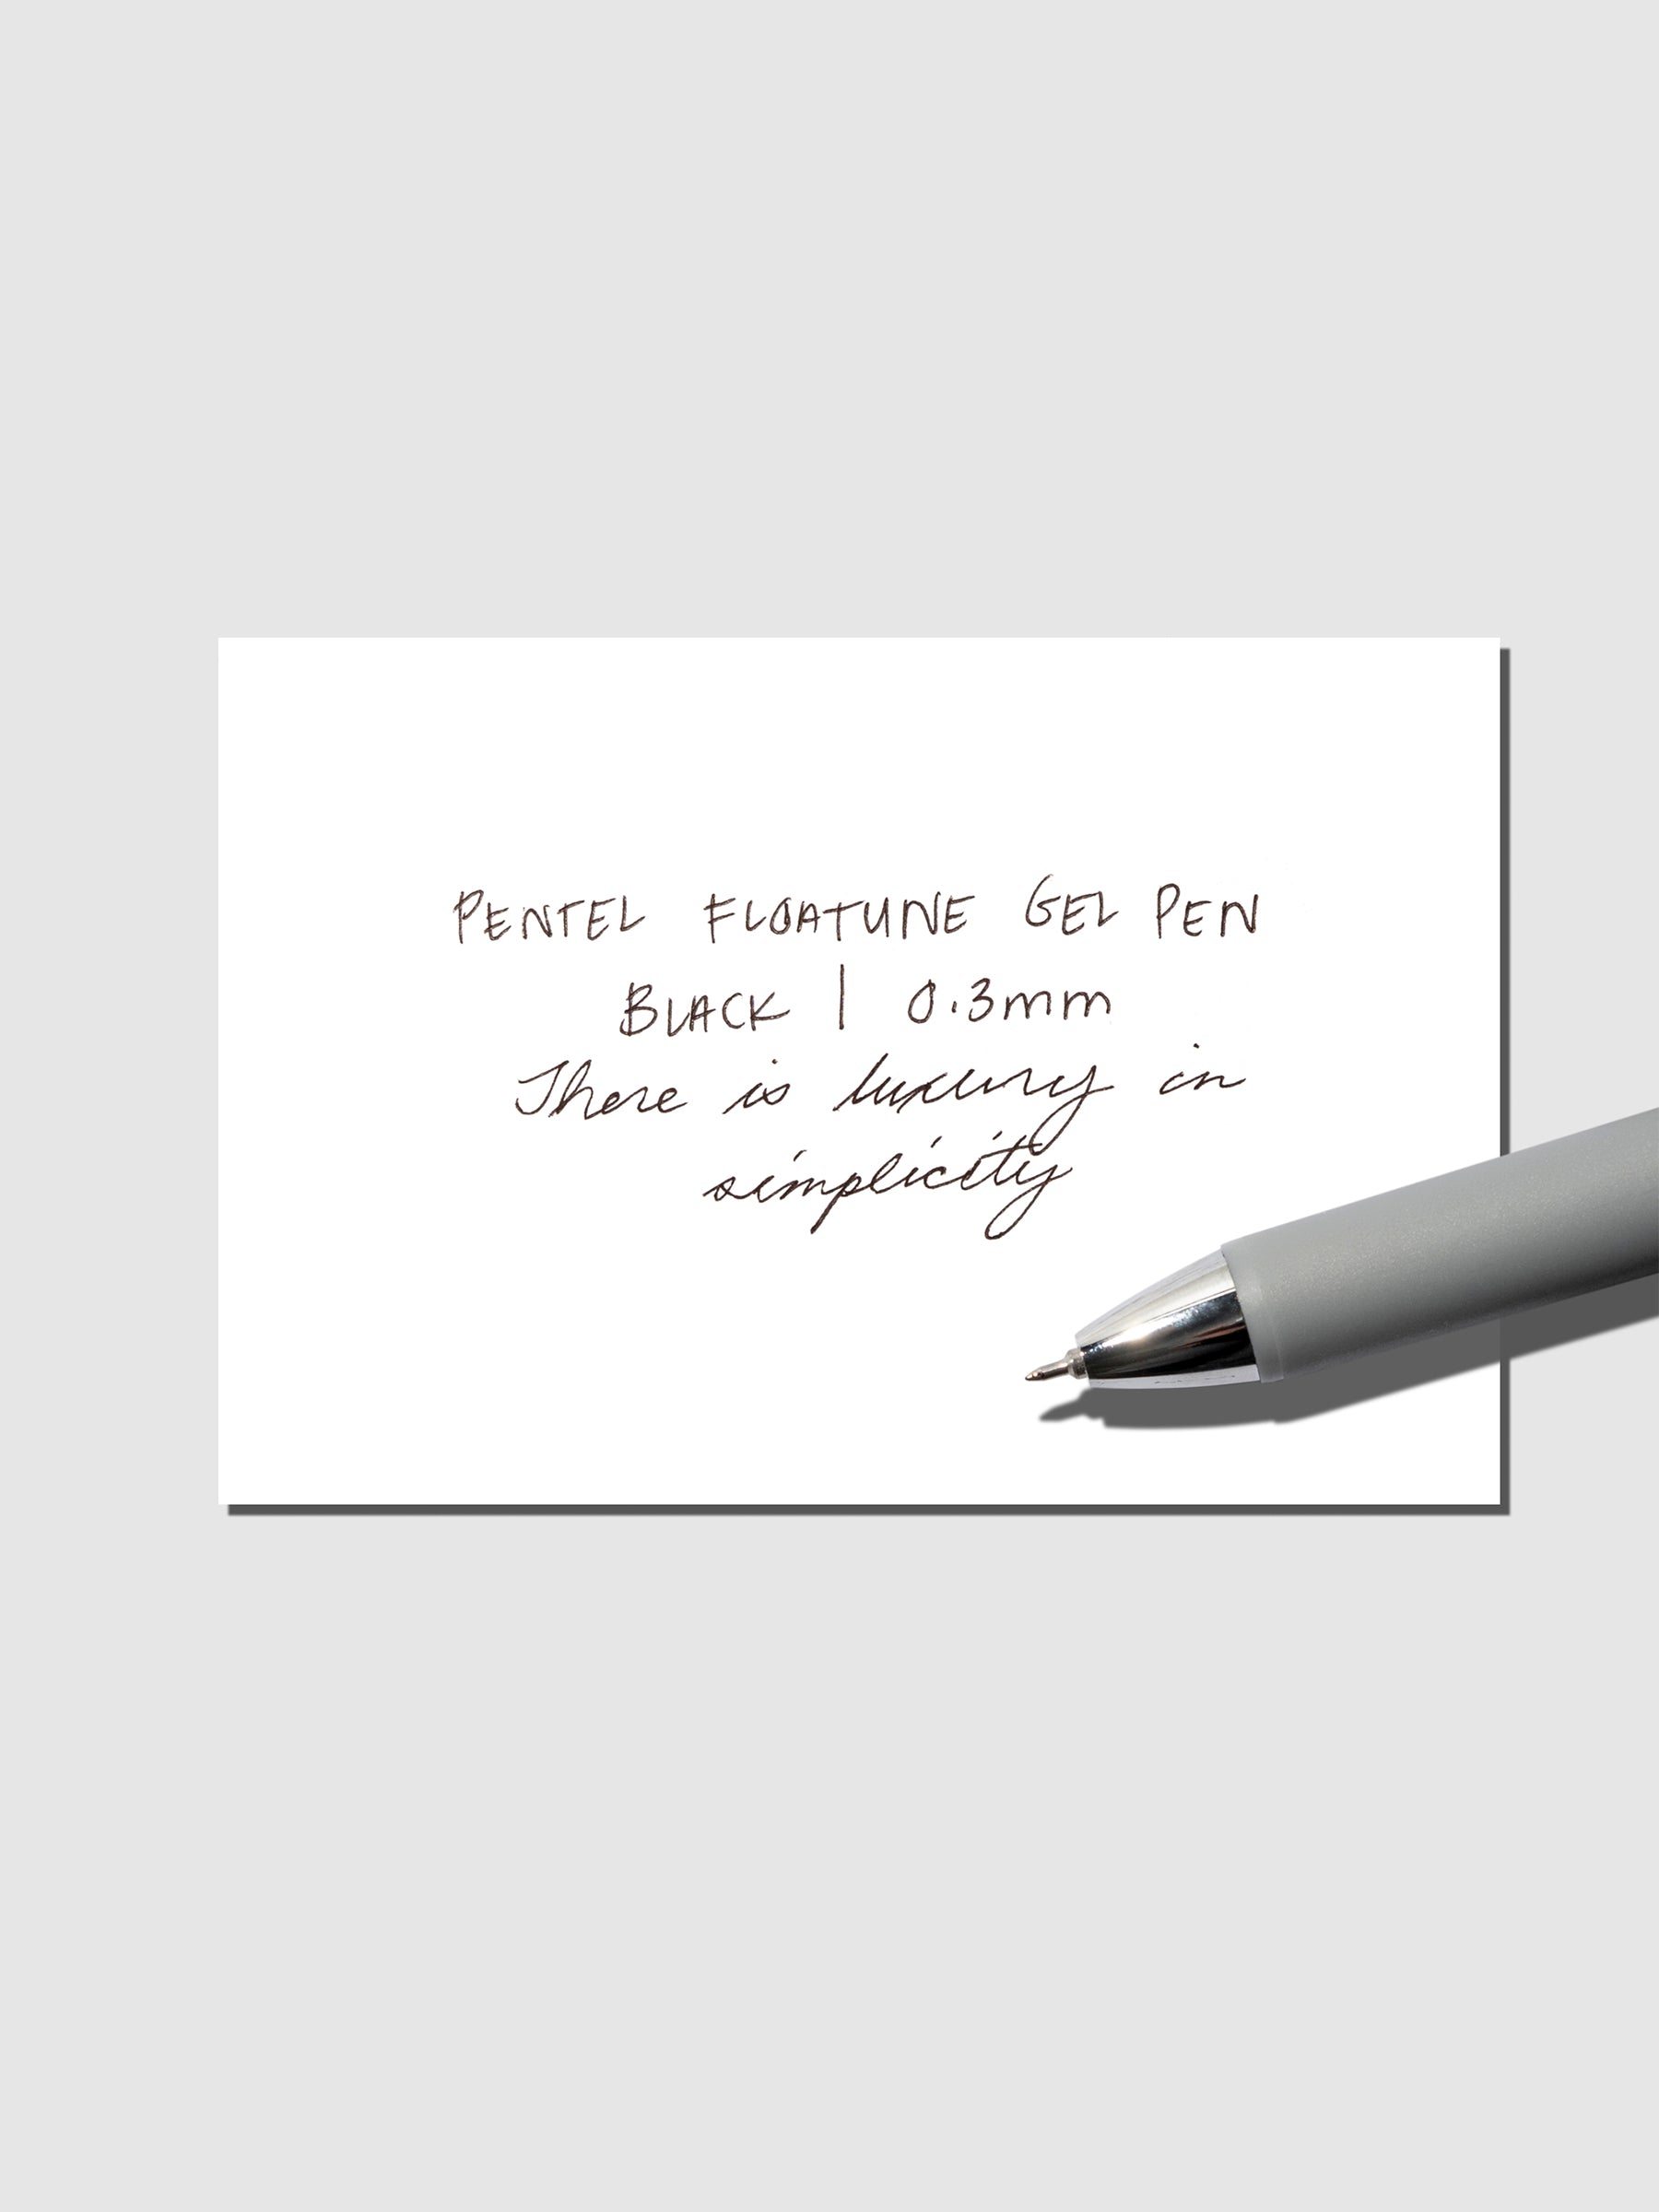 PENTEL FLOATUNE GEL PEN
BLACK | 0.3mm
There is luxury in
simplicity